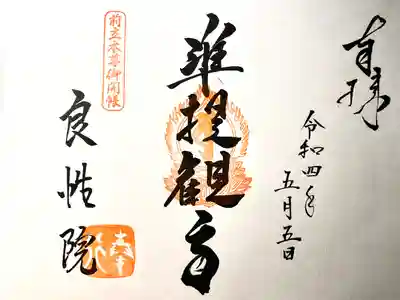 奉拝
令和四年
五月五日
准提観音
前立本尊御開帳
良性院